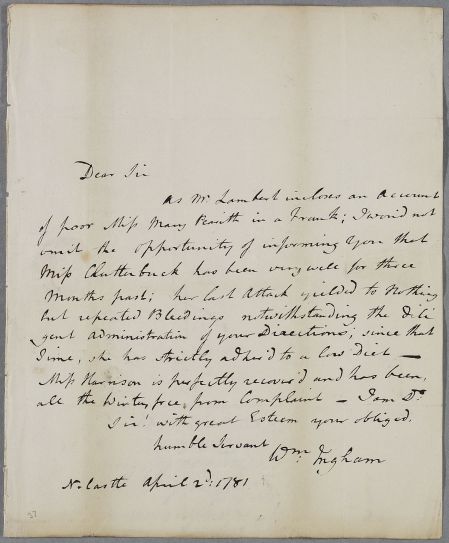 Dear Sir
As Mr Lambert incloses an Account
of poor Miss Mary Peareth in a Frank; I would not
omit the opportunity of informing You that
Miss Clutterbuck has been very well for three
Months past; her last Attack yeilded to Nothing
but repeated Bleedings notwithstanding the dili
gent administration of your Directions; since that
Time, she has strictly adher'd to a Low Diet —
Miss Harrison is perfectly recover'd and has been,
all the Winter free from Complaint — I am Dr.
Sir! with great Esteem your obliged,
humble Servant
Wm. Ingham
N.Castle April 2d: 1781
37